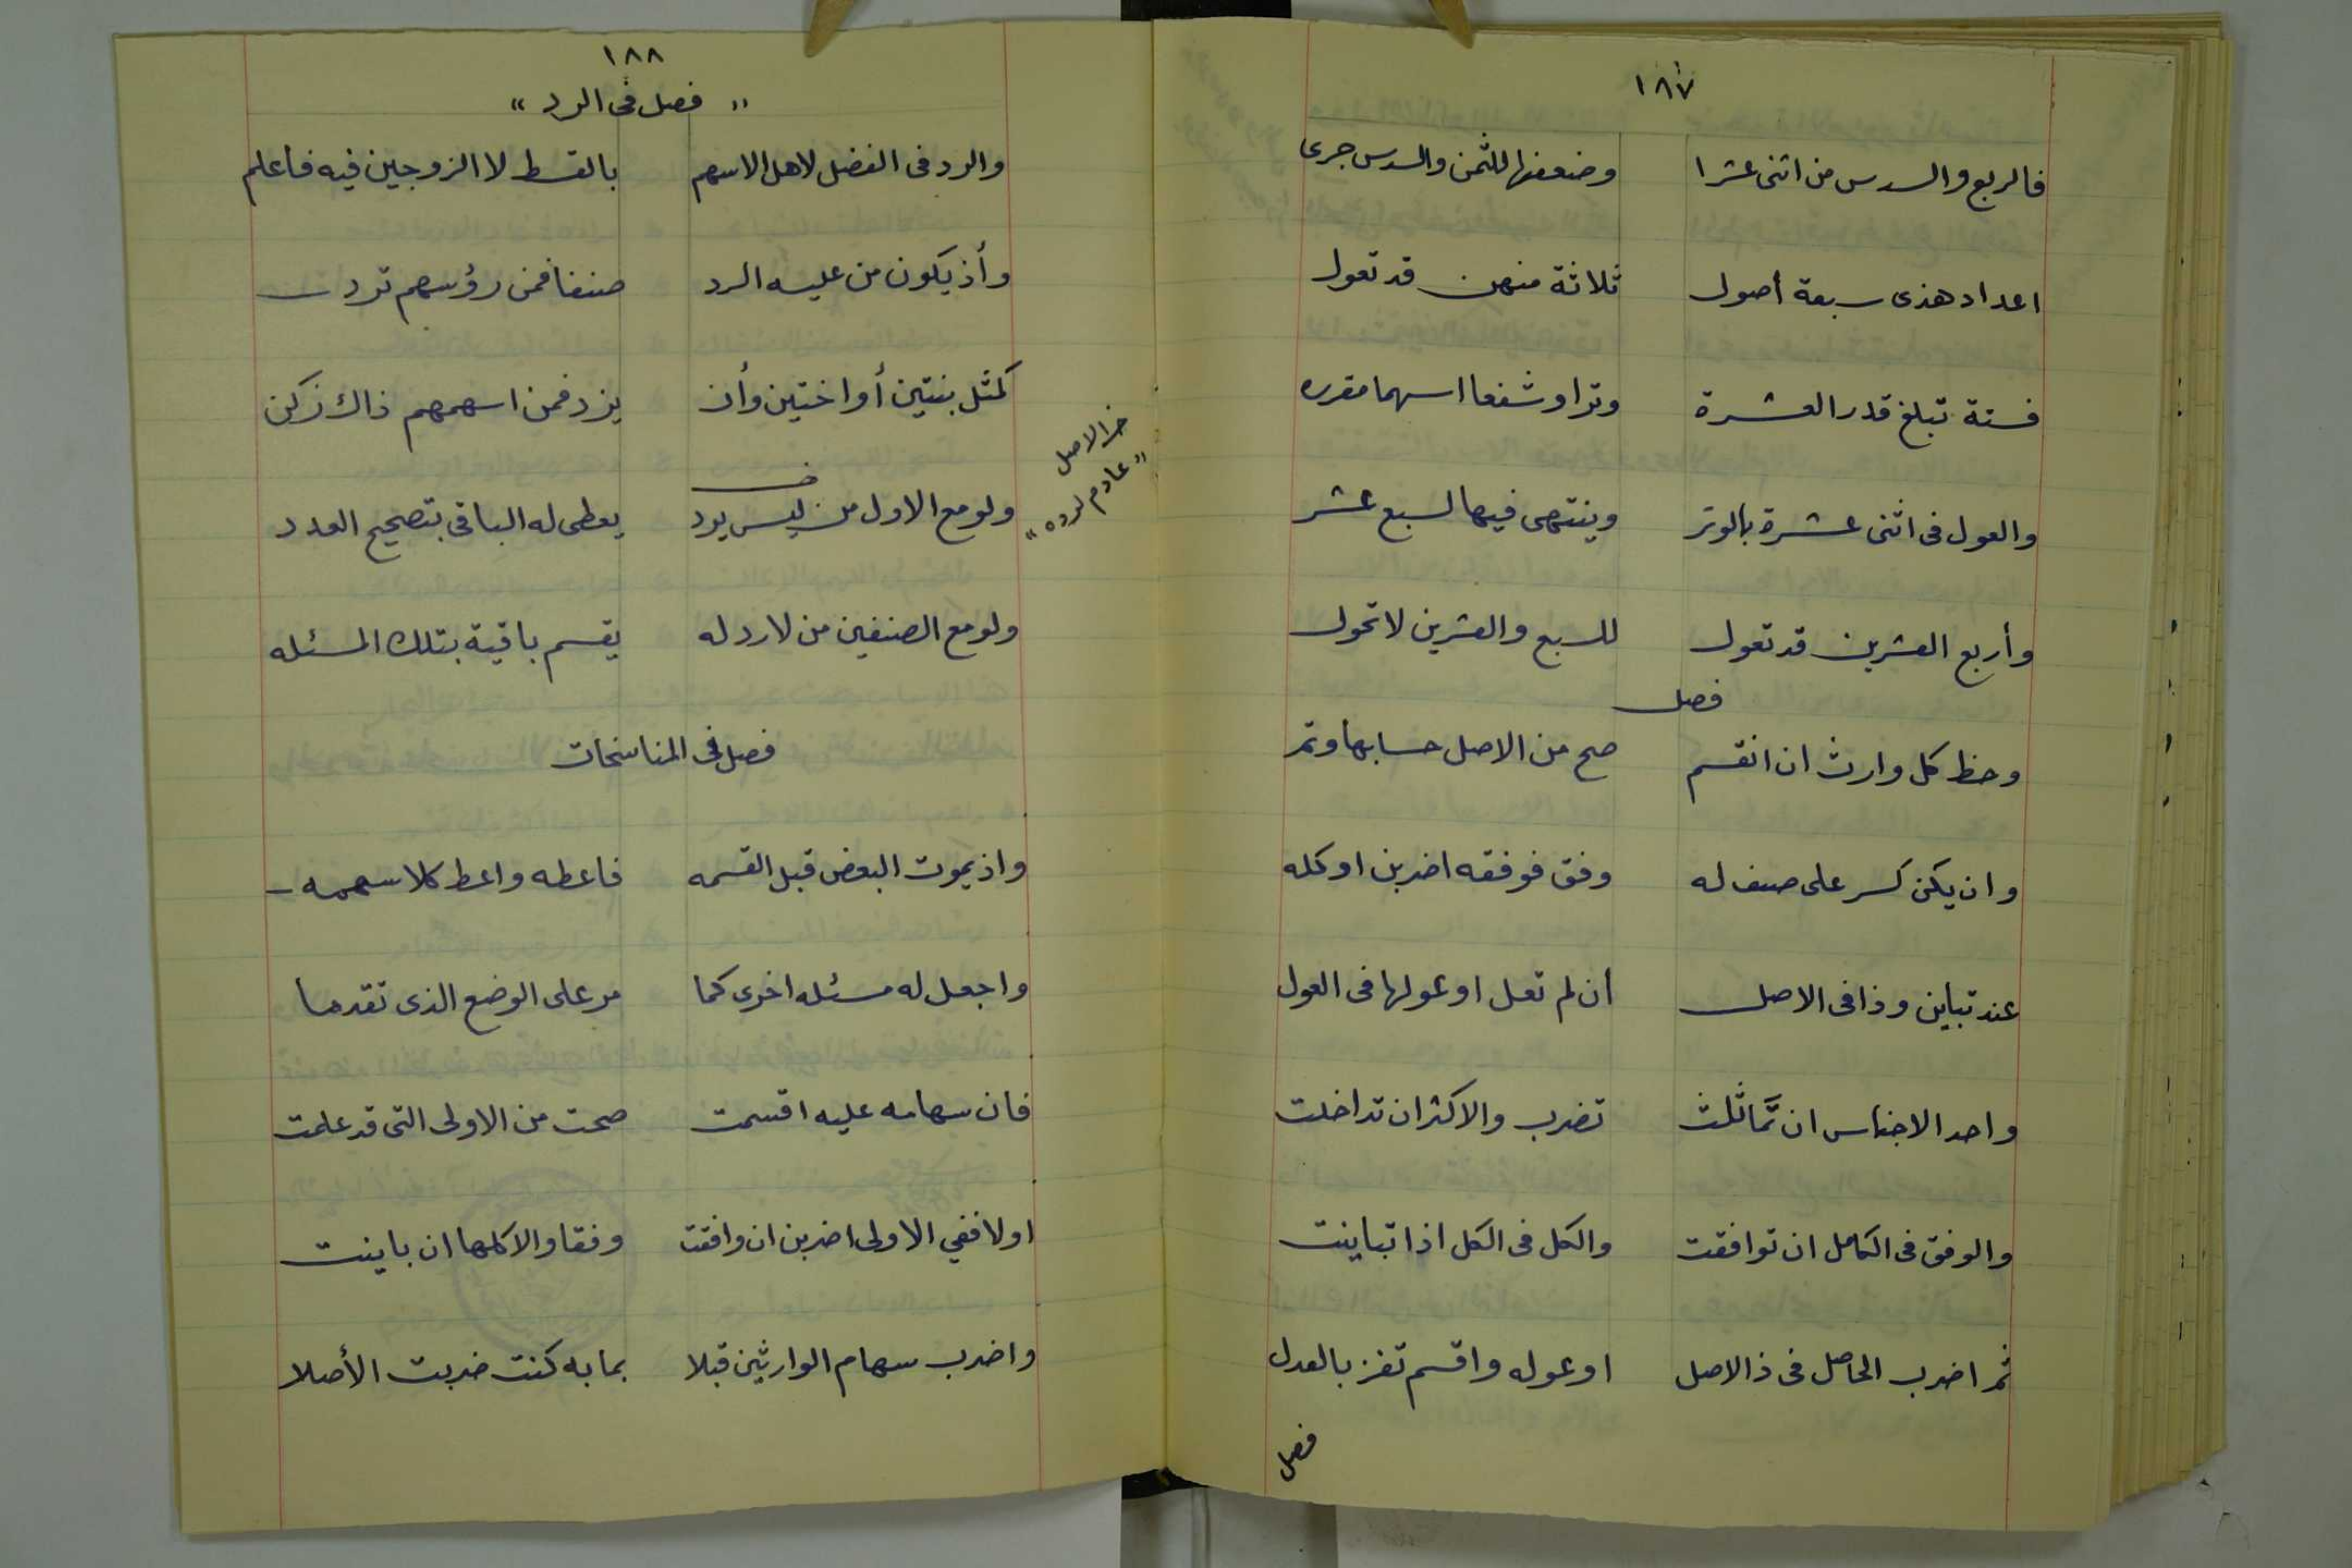 ١٨٧
فالربع والسدس من اثنى عشرا وضعفها للثمن والسدس جرى
اعداد هذى سبعة أصول ثلاثة منهن قد تعول
فستة تبلغ قدر العشرة وترا وشفعا اسهما مقرره
والعول فى اثنى عشرة بالوتر وينتهى فيها لسبع عشر
وأربع العشرين قد تعول للسبع والعشرين لا تحول
فصل
وحظ كل وارث ان انقسم صح من الاصل حسابها وتم
وان يكن كسر على صنف له وفق فوفقه اضربن او كله
عند تباين وذا فى الاصل أن لم تعل او عولها فى العول
واحد الاجناس ان تمَّاثلث تضرب والاكثر ان تداخلت
والوفق فى الكامل ان توافقت والكل فى الكل اذا تباينت
ثم اضرب الحاصل فى ذا الاصل او عوله واقسم تفز بالعدل
فصل
١٨٨
" فصل فى الرد "
والرد فى الفضل لاهل الاسهم بالقسط لا الزوجين فيه فاعلم
وأذ يكون من عليه الرد صنفا فمن رؤسهم ترد
كمثل بنتين أو اختين وأن يزد فمن اسهمهم ذاك زكن
ولو مع الاول من ليس يرد يعطى له الباقى بتصحيح العدد
خ الاصل
" عادم لرده "
ولو مع الصنفين من لا رد له يقسم باقية بتلك المسئله
فصل فى المناسخات
واذ يموت البعض قبل القسمه فاعطه واعط كلا سهمه
واجعل له مسئله اخرى كما مر على الوضع الذى تقدما
فان سهامه عليه اقسمت صحت من الاولى التى قد علمت
اولا ففي الاولى اضربن ان وافقت وفقا والا كلها ان باينت
واضرب سهام الوارثين قبلا بما به كنت ضربت الأصلا